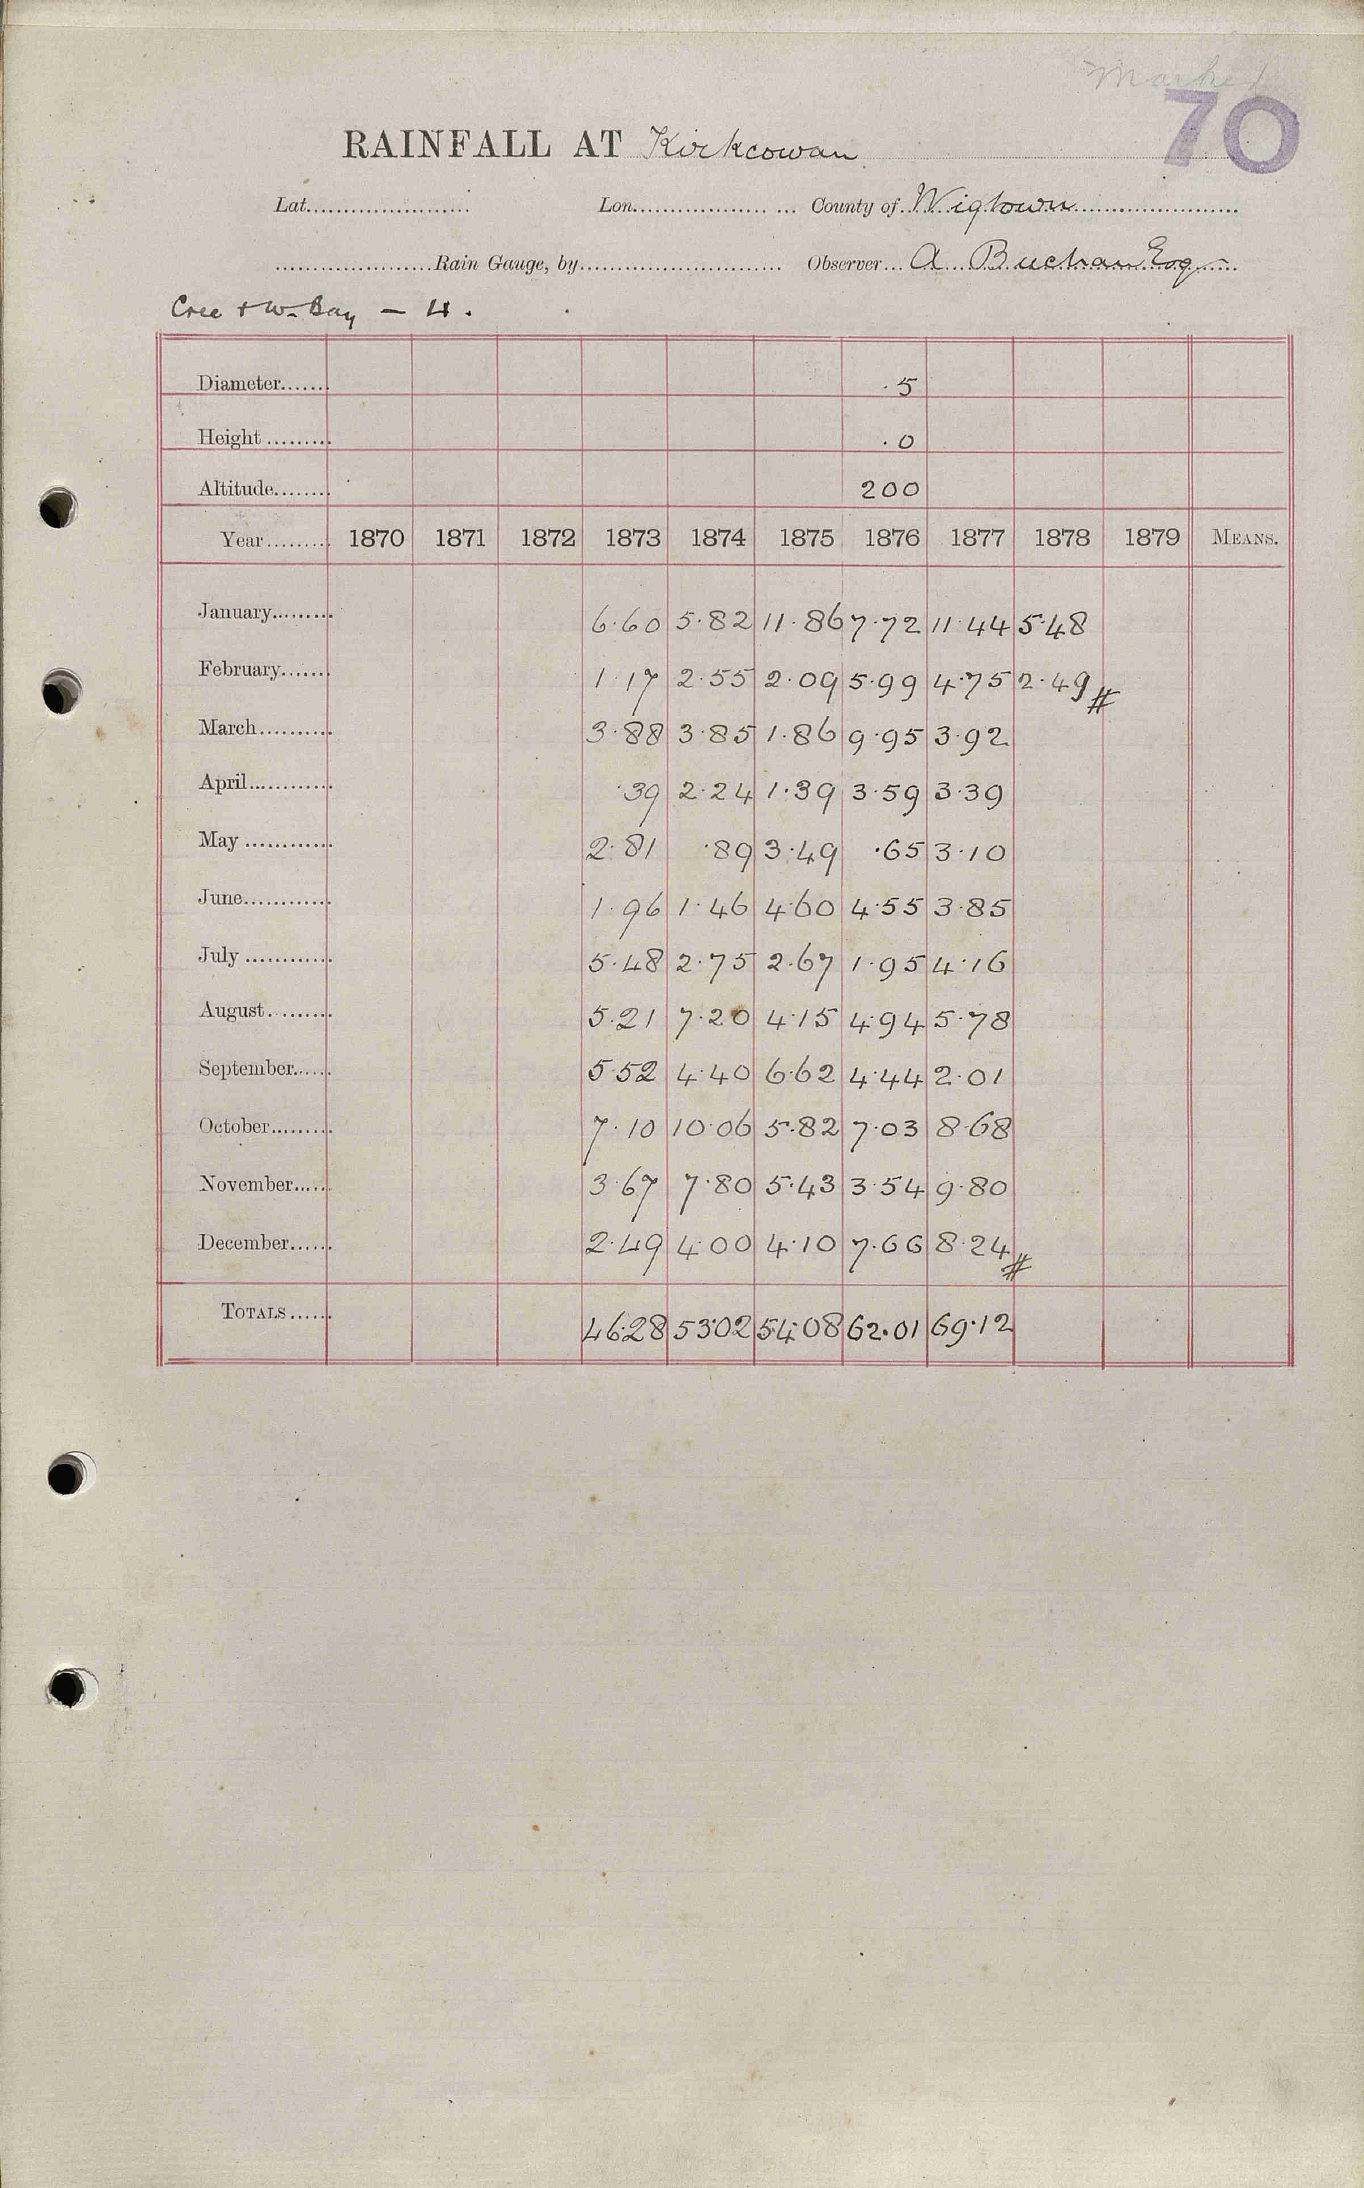 Marked
70
RAINFALL AT Kirkcowan
Lat. Lon. County of Wigtown
Rain Gauge, by Observer A Buchan Esq
Cree + W. Bay — 4.
Diameter 5
Height 0
Altitude 200
Year 1870 1871 1872 1873 1874 1875 1876 1877 1878 1879 MEANS.
January 6.60 5.82 11.86 7.72 11.44 5.48
February 1.17 2.55 2.09 5.99 4.75 2.49 #
March 3.88 3.85 1.86 9.95 3.92
April .39 2.24 1.39 3.59 3.39
May 2.81 .89 3.49 .65 3.10
June 1.96 1.46 4.60 4.55 3.85
July 5.48 2.75 2.67 1.95 4.16
August 5.21 7.20 4.15 4.94 5.78
September 5.52 4.40 6.62 4.44 2.01
October 7.10 10.06 5.82 7.03 8.68
November 3.67 7.80 5.43 3.54 9.80
December 2.49 4.00 4.10 7.66 8.24 #
TOTALS 46.28 53.02 54.08 62.01 69.12